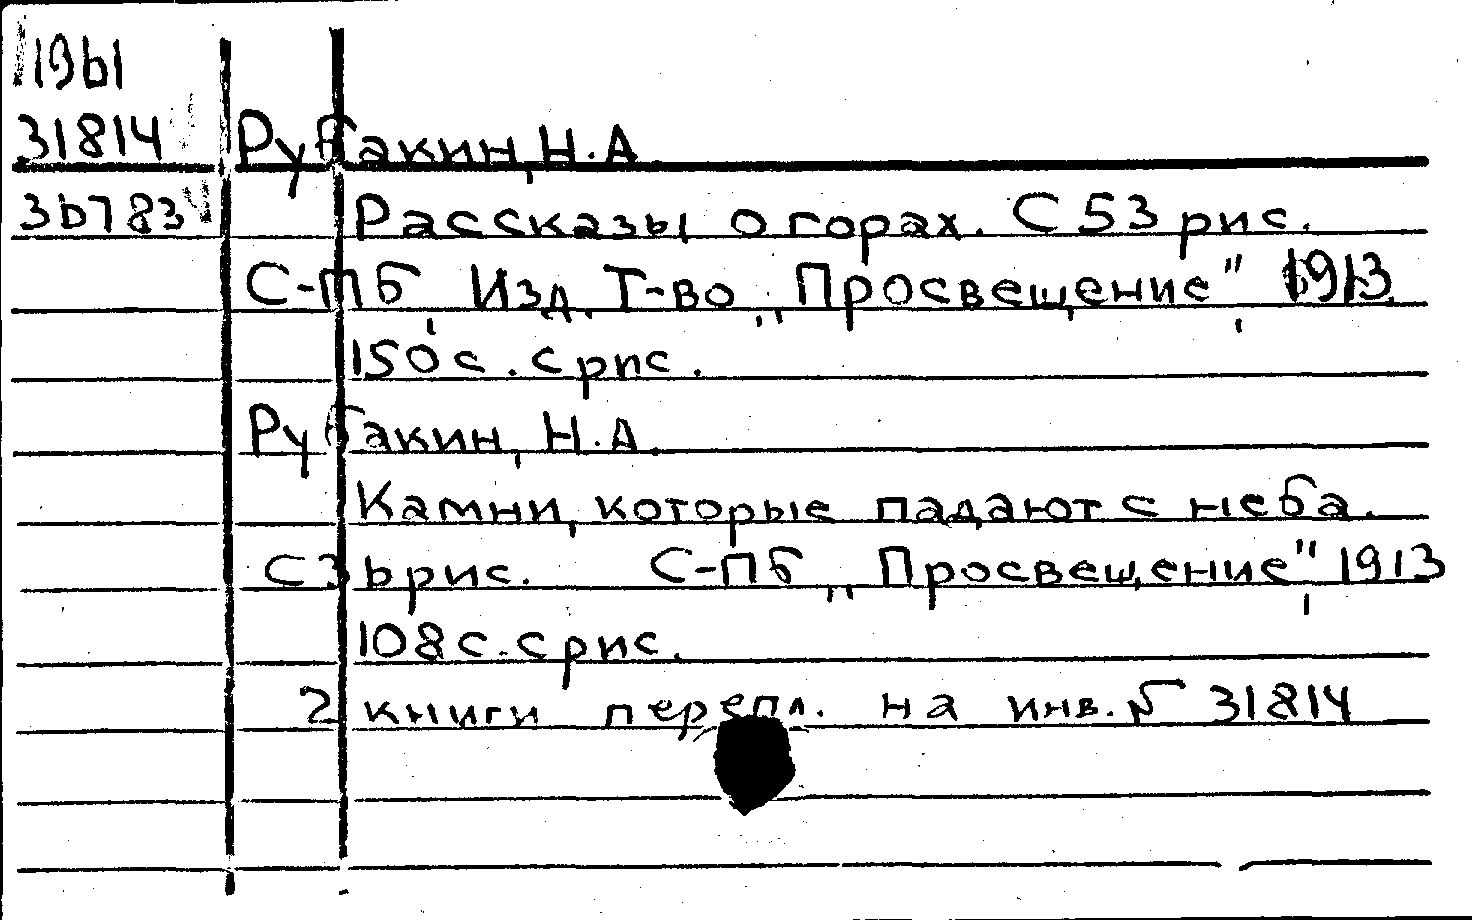 1961
31814 Рубакин, Н.А.
36783 Рассказы о горах. С 53 рис.
С-ПБ, Изд. Т-во „Просвещение", 1913.
150 с. с рис.
Рубакин, Н.А.
Камни, которые падают с неба.
С 36 рис. С-ПБ „Просвещение", 1913
108 с. с рис.
2 книги перепл. на инв. № 31814